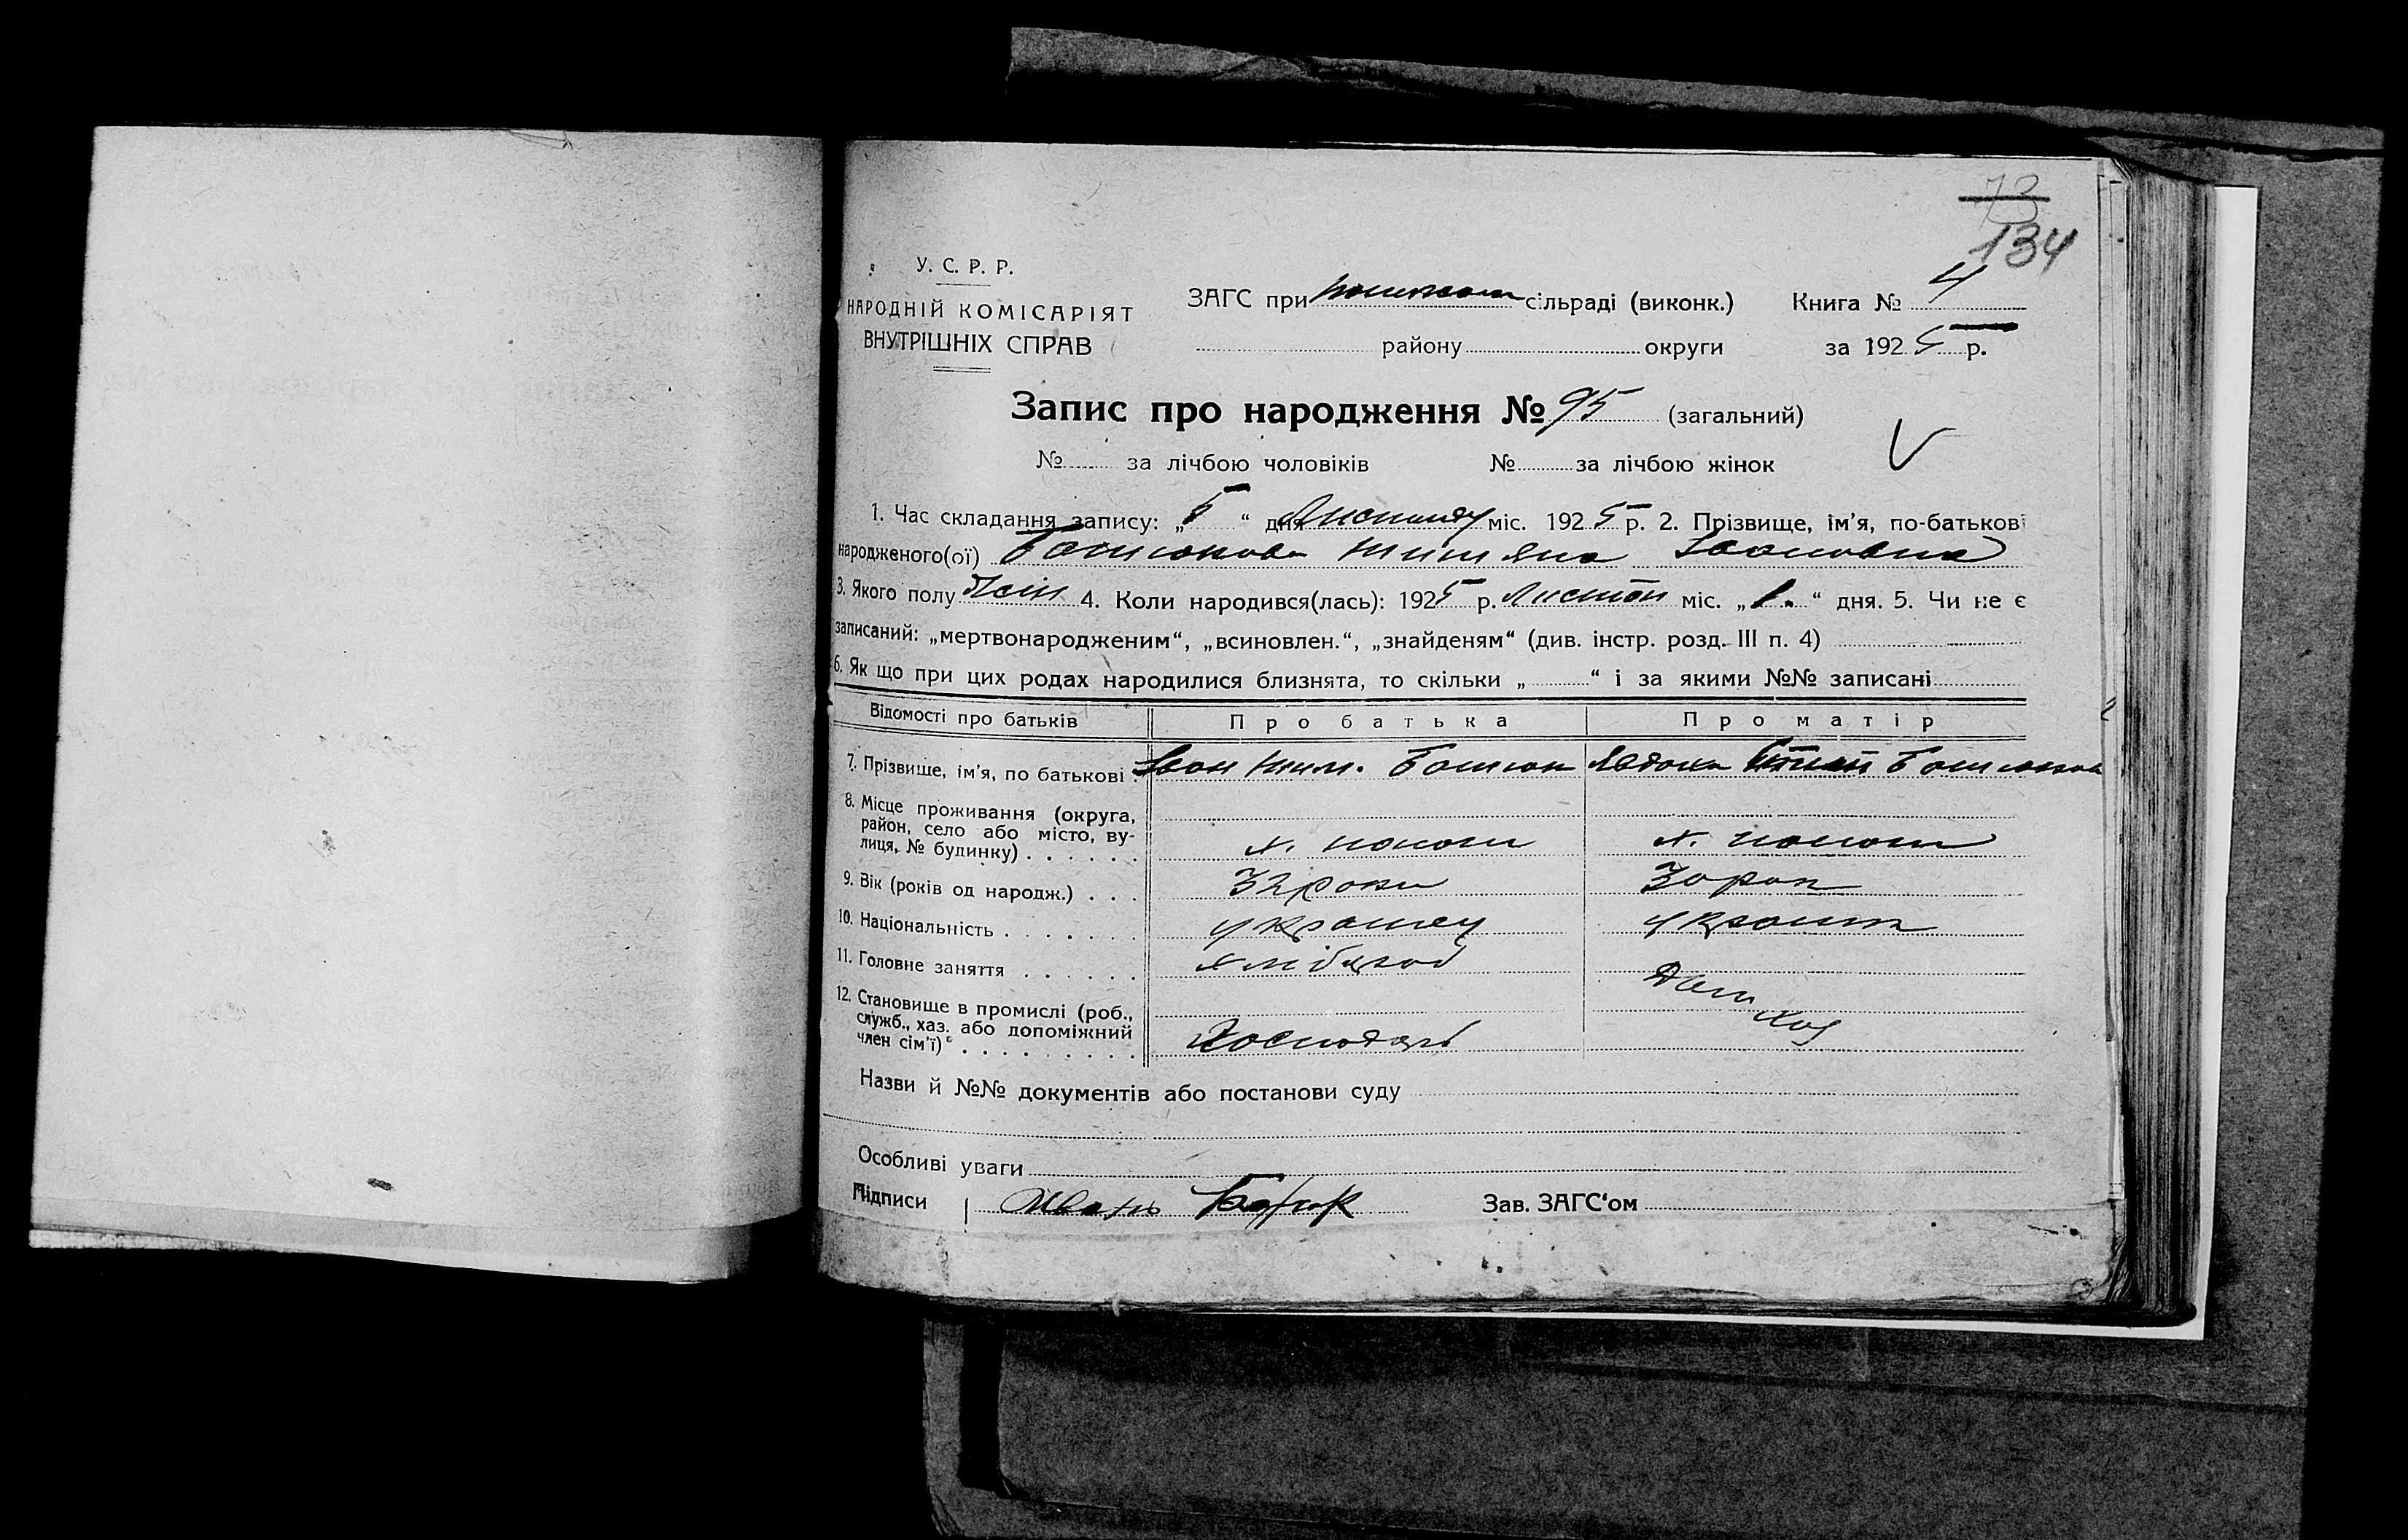 73
134
У. С. Р. Р.
НАРОДНІЙ КОМІСАРІЯТ
ВНУТРІШНІХ СПРАВ
ЗАГС при сільраді (виконк.) Книга № 4
району округи за 1925 р.
Запис про народження № 95 (загальний)
№ за лічбою чоловіків № за лічбою жінок
1. Час складання запису: „5“ дня міс. 1925 р. 2. Прізвище, ім'я, по-батькові
народженого(ої) Івановна
3. Якого полу 4. Коли народився(лась): 1925 р. Листоп міс. „1“ дня. 5. Чи не є
записаний: „мертвонародженим“, „всиновлен.“, „знайденям“ (див. інстр. розд. III п. 4)
6. Як що при цих родах народилися близнята, то скільки „ “ і за якими №№ записані
Відомості про батьків Про батька Про матір
7. Прізвище, ім'я, по батькові Іван
8. Місце проживання (округа,
район, село або місто, ву-
лиця, № будинку)
9. Вік (років од народж.) 32 роки 30 рок
10. Національність українец україн
11. Головне заняття хлібороб
Дом
12. Становище в промислі (роб.,
служб., хаз. або допоміжний
член сім'ї) Господарь хоз
Назви й №№ документів або постанови суду
Особливі уваги
Підписи Зав. ЗАГС'ом